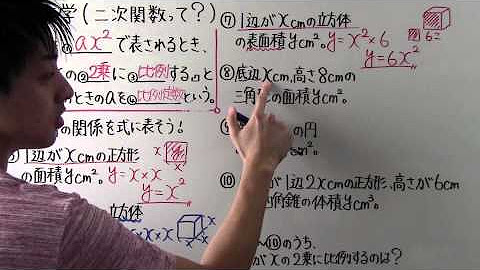 学(二次関数って?)
ax²で表されるとき、
の②2乗に③比例する」と
ときのaを④比例定数という。
の関係を式に表そう!
辺がxcmの正方形
の面積ycm²。 y=x×x
y=x²
x
x
立方体
x×x
x
x
x
⑦1辺がxcmの立方体
の表面積ycm²。y=x²×6
y=6x²
6こ
⑧底辺xcm,高さ8cmの
三角形の面積ycm²。
の円
cm²。
⑩
が1辺2xcmの正方形、高さが6cm
角錐の体積ycm³。
~⑩のうち、
がxの2乗に比例するのは?